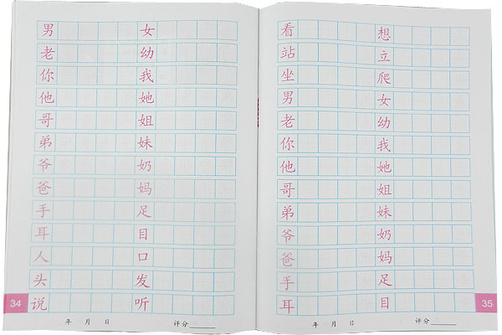 男 女
老 幼
你 我
他 她
哥 姐
弟 妹
爷 奶
爸 妈
手 足
耳 目
人 口
头 发
说 听
34
年 月 日 评分
看 想
站 立
坐 爬
男 女
老 幼
你 我
他 她
哥 姐
弟 妹
爷 奶
爸 妈
手 足
耳 目
35
年 月 日 评分